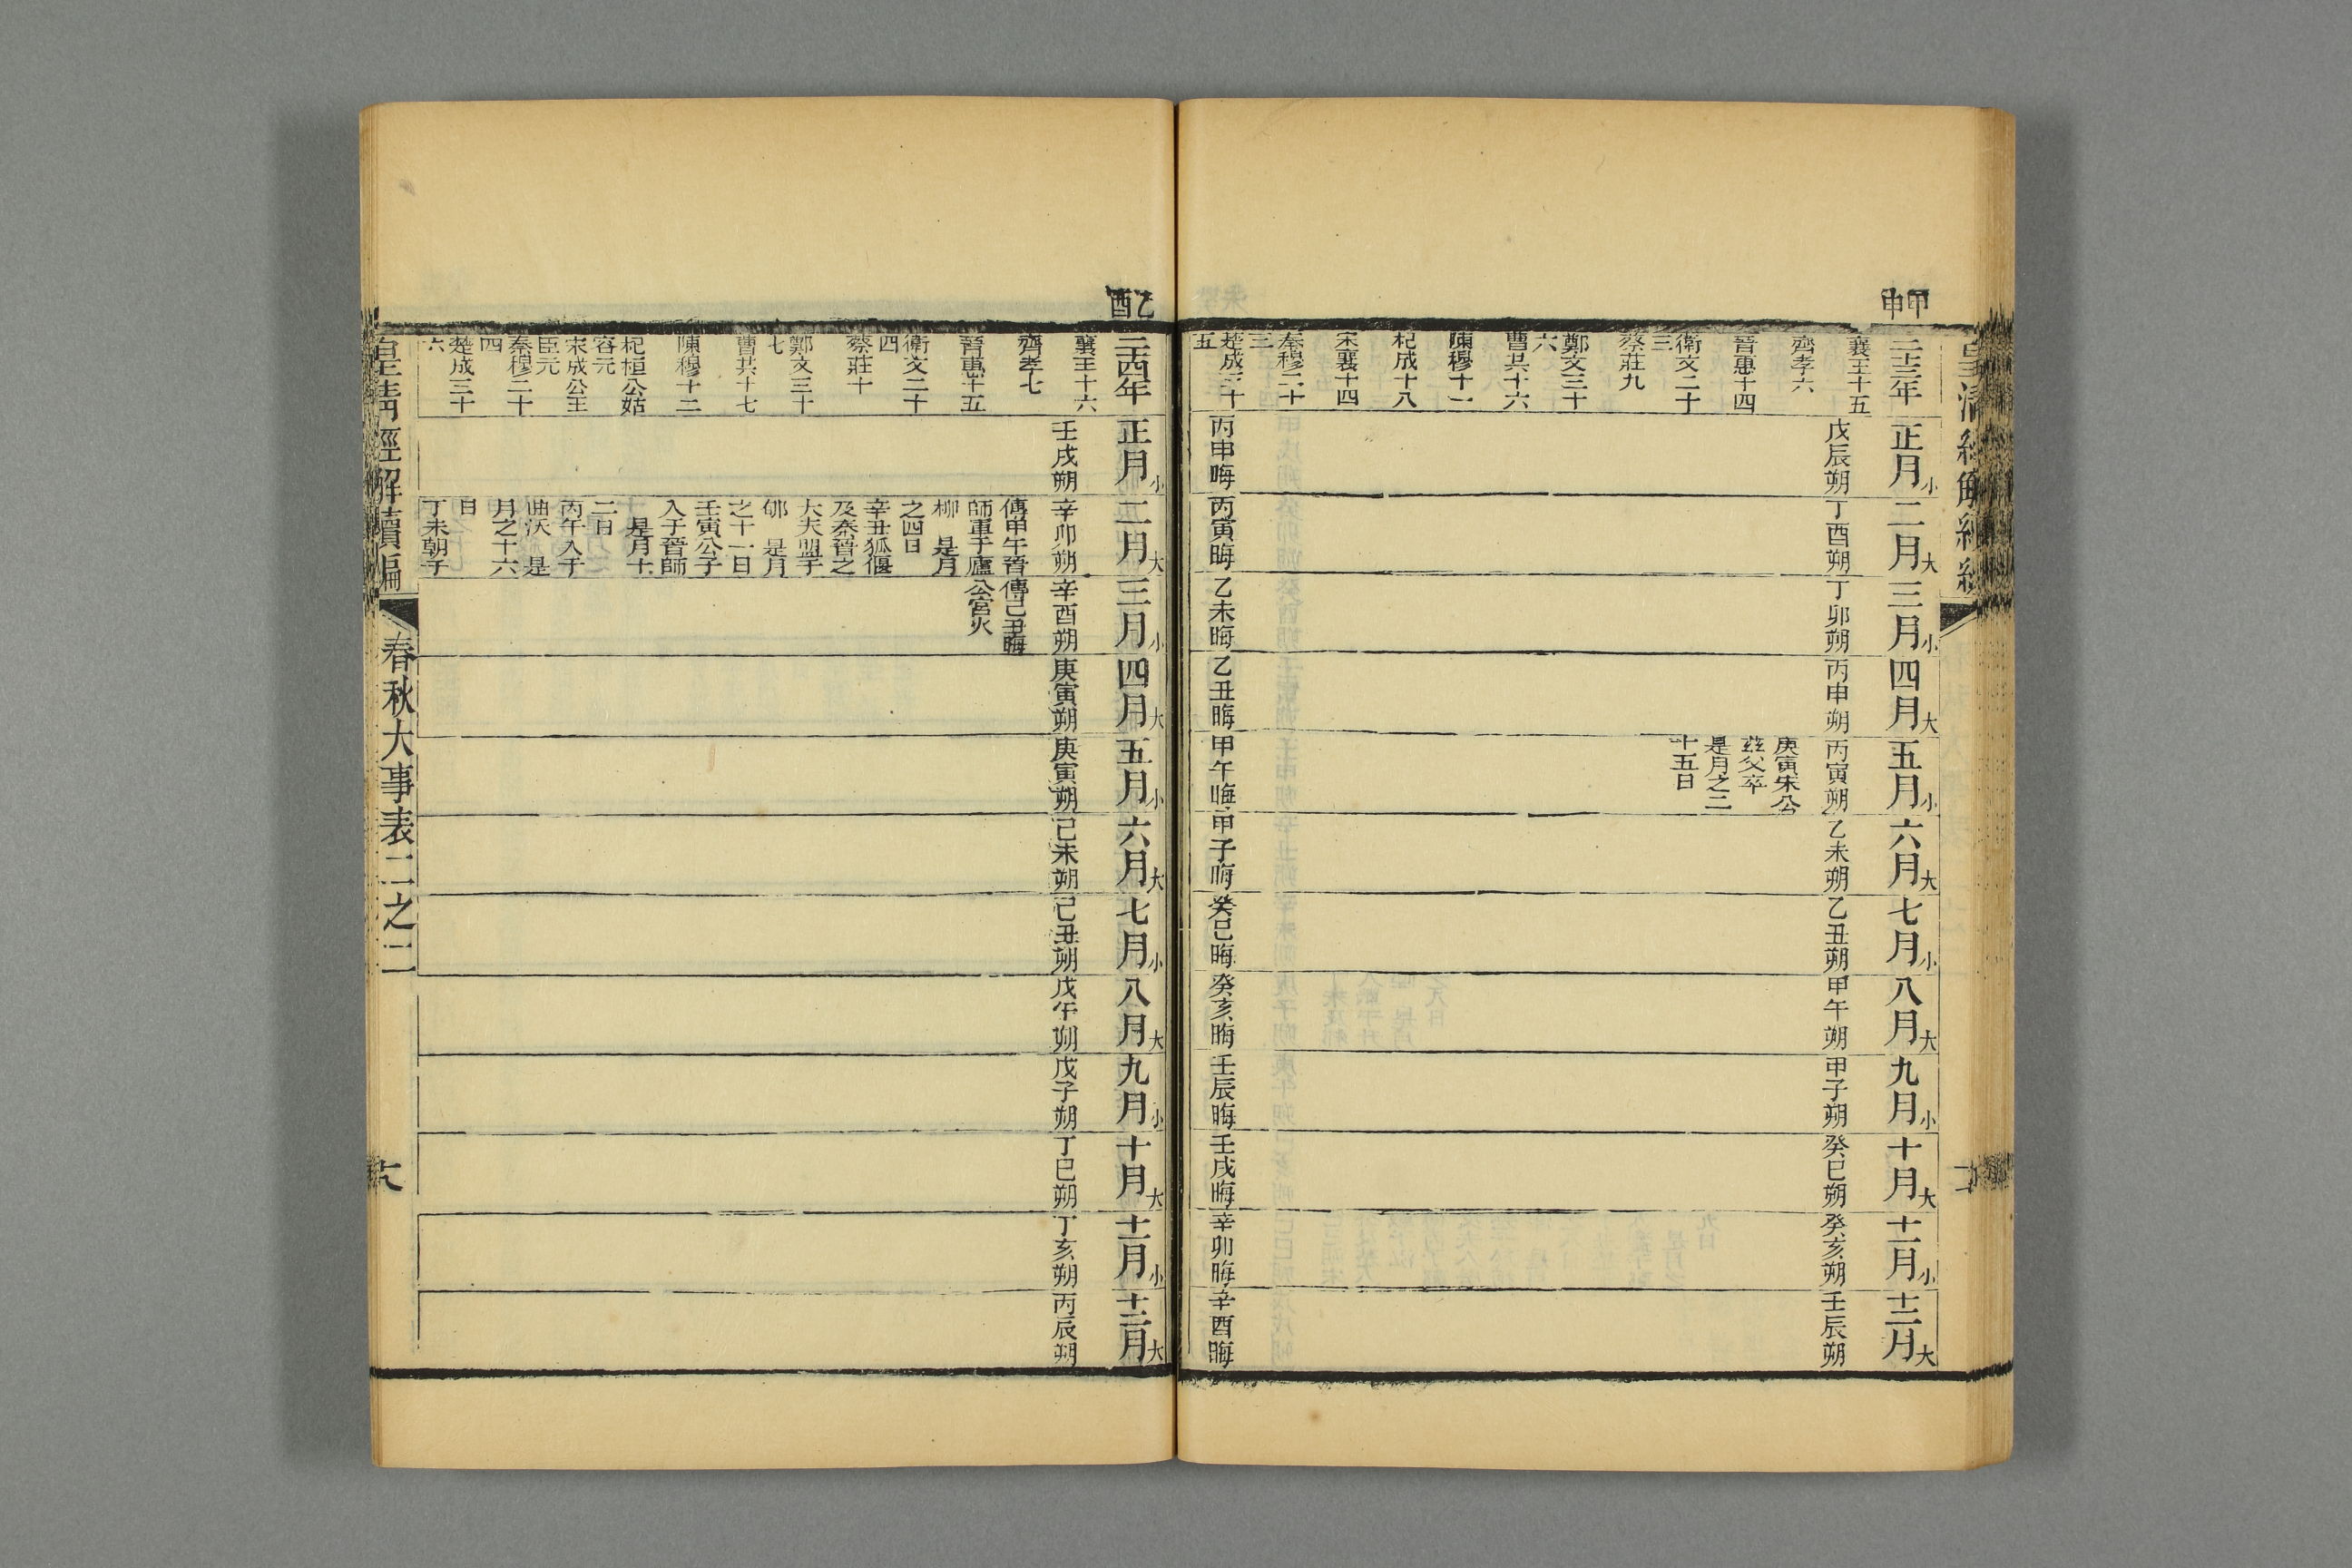 甲申
二十三年
襄王十五
齊孝六
晉惠十四
衛文二十
三
蔡莊九
鄭文三十
六
曹共十六
陳穆十一
杞成十八
宋襄十四
秦穆二十
三
楚成三十
五
正月小
戊辰朔
丙申晦
二月大
丁酉朔
丙寅晦
三月小
丁卯朔
乙未晦
四月大
丙申朔
乙丑晦
五月小
丙寅朔
庚寅宋公
茲父卒
是月之二
十五日
甲午晦
六月大
乙未朔
甲子晦
七月小
乙丑朔
癸巳晦
八月大
甲午朔
癸亥晦
九月小
甲子朔
壬辰晦
十月大
癸巳朔
壬戌晦
十一月小
癸亥朔
辛卯晦
十二月大
壬辰朔
辛酉晦
乙酉
二十四年
襄王十六
齊孝七
晉惠十五
衛文二十
四
蔡莊十
鄭文三十
七
曹共十七
陳穆十二
杞桓公姑
容元
宋成公王
臣元
秦穆二十
四
楚成三十
六
正月小
壬戌朔
二月大
辛卯朔
傳甲午晉
師軍于廬
柳 是月
之四日
辛丑狐偃
及秦晉之
大夫盟于
郇 是月
之十一日
壬寅公子
入于晉師
是月十
二日
丙午入于
曲沃 是
月之十六
日
丁未朝于
三月小
辛酉朔
傳己丑晦
公宮火
四月大
庚寅朔
五月小
庚寅朔
六月大
己未朔
七月小
己丑朔
八月大
戊午朔
九月小
戊子朔
十月大
丁巳朔
十一月小
丁亥朔
十二月大
丙辰朔
皇清經解續編
春秋大事表二之二